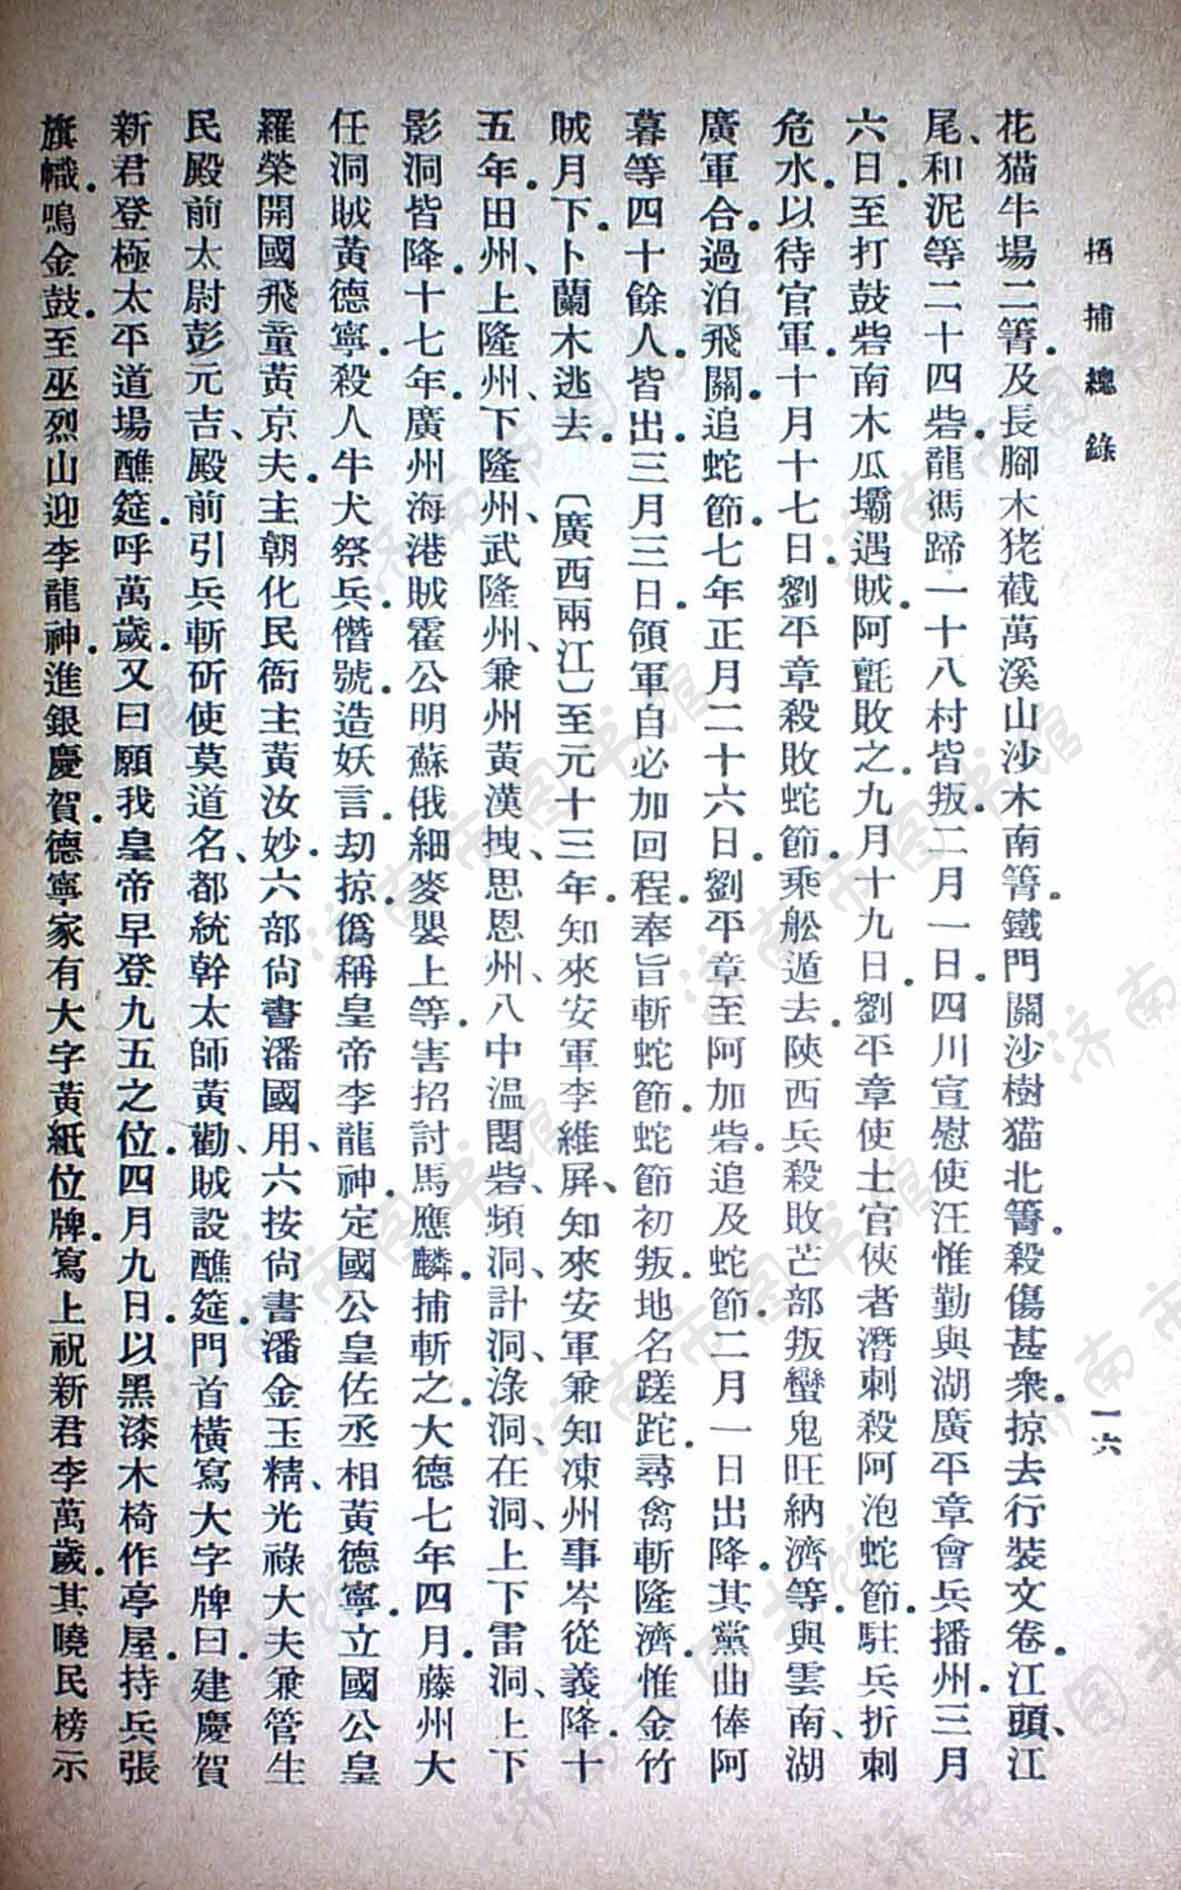 招捕總錄
一六
花猫牛場二箐。及長腳木狫截萬溪山沙木南箐。鐵門關沙樹猫北箐。殺傷甚衆。掠去行裝文卷。江頭、江
尾、和泥等二十四砦。龍馮蹄一十八村皆叛。二月一日。四川宣慰使汪惟勤與湖廣平章會兵播州。三月
六日。至打鼓砦南木瓜壩。遇賊。阿氈敗之。九月十九日。劉平章使土官俠者潛刺殺阿泡蛇節。駐兵折刺
危水。以待官軍。十月十七日。劉平章殺敗蛇節。乘舩遁去。陝西兵殺敗芒部叛蠻鬼旺納濟等。與雲南、湖
廣軍合。過泊飛關。追蛇節。七年正月二十六日。劉平章至阿加砦。追及蛇節。二月一日出降。其黨曲俸阿
暮等四十餘人。皆出。三月三日。領軍自必加回程。奉旨斬蛇節。蛇節初叛。地名蹉跎。尋禽斬隆濟。惟金竹
賊月下。卜蘭木逃去。〔廣西兩江〕至元十三年。知來安軍李維屏、知來安軍兼知凍州事岑從義降。十
五年。田州、上隆州、下隆州、武隆州、兼州黃漢拽、思恩州、八中温閉砦、頻洞、計洞、淥洞、在洞、上下雷洞、上下
影洞皆降。十七年。廣州海港賊霍公明蘇俄細麥嬰上等。害招討馬應麟。捕斬之。大德七年四月。藤州大
任洞賊黃德寧。殺人牛犬祭兵。僭號。造妖言。劫掠。僞稱皇帝李龍神。定國公皇佐丞相黃德寧。立國公皇
羅榮開國飛童黃京夫。主朝化民衙主黃汝妙。六部尙書潘國用、六按尙書潘金玉精、光祿大夫兼管生
民殿前太尉彭元吉、殿前引兵斬斫使莫道名、都統幹太師黃勸、賊設醮筵。門首橫寫大字牌曰。建慶賀
新君登極太平道場醮筵。呼萬歲。又曰願我皇帝早登九五之位。四月九日。以黑漆木椅作亭屋。持兵張
旗幟。鳴金鼓。至巫烈山迎李龍神。進銀慶賀。德寧家有大字黃紙位牌。寫上祝新君李萬歲。其曉民榜示